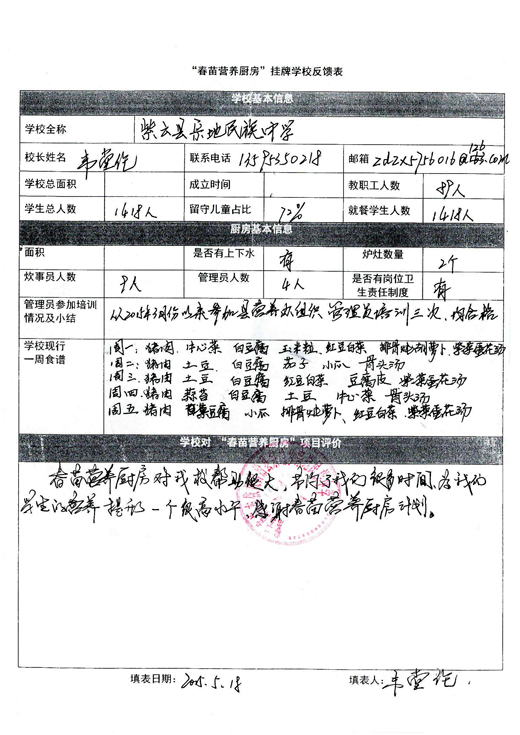 “春苗营养厨房”挂牌学校反馈表
学校基本信息
学校全称 紫云县宗地民族中学
校长姓名 韦堂 联系电话 13595350218 邮箱
学校总面积 成立时间 教职工人数 89人
学生总人数 1418人 留守儿童占比 72% 就餐学生人数 1418人
厨房基本信息
面积 是否有上下水 有 炉灶数量 2个
炊事员人数 9人 管理员人数 4人 是否有岗位卫
生责任制度 有
管理员参加培训
情况及小结 从2015年3月份以来参加县营养办组织管理员培训三次、均合格
学校现行
一周食谱
周一：猪肉 中心菜 白豆腐 玉米粒、红豆白菜 排骨炖胡萝卜、紫菜蛋花汤
周二：猪肉 土豆 白豆腐 茄子 小瓜 骨头汤
周三：猪肉 土豆 白豆腐 红豆白菜 豆腐皮 紫菜蛋花汤
周四：猪肉 蒜苔 白豆腐 土豆 中心菜 骨头汤
周五：猪肉 豆腐 小瓜 排骨炖萝卜、红豆白菜 紫菜蛋花汤
学校对“春苗营养厨房”项目评价
春苗营养厨房对我校帮助很大，节约了我们很多时间、为我们
学生的营养提升一个很高水平、感谢春苗营养厨房计划。
填表日期：2015.5.18 填表人：韦堂